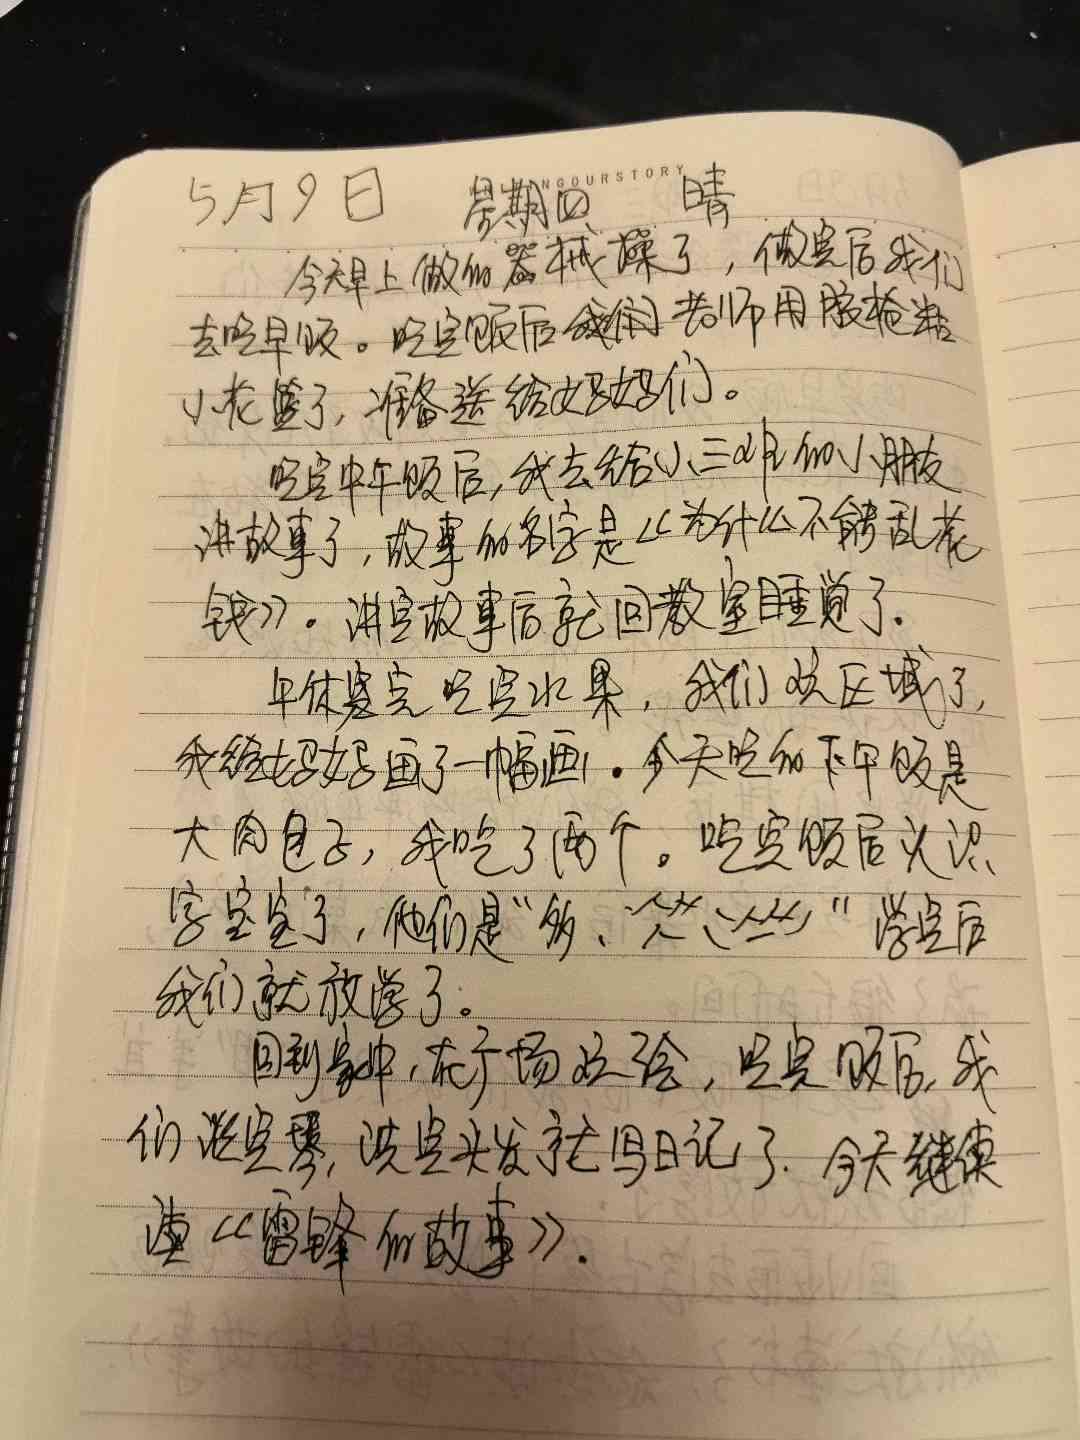 5月9日 星期四 晴
NGOURSTORY
今天早上做的器械操了，做完后我们
去吃早饭。吃完饭后我们老师用胶枪粘
小花篮了，准备送给妈妈们。
吃完中午饭后，我去给小三班的小朋友
讲故事了，故事的名字是《为什么不能乱花
钱》。讲完故事后就回教室睡觉了.
午休完吃完水果，我们玩区域了，
我给妈妈画了一幅画。今天吃的下午饭是
大肉包子，我吃了两个。吃完饭后认识
字宝宝了，他们是“多、 、 ”学完后
我们就放学了。
回到家中，在广场玩 ，吃完饭后，我
们 完琴，洗完头发就写日记了. 今天继续
读《雷锋的故事》.